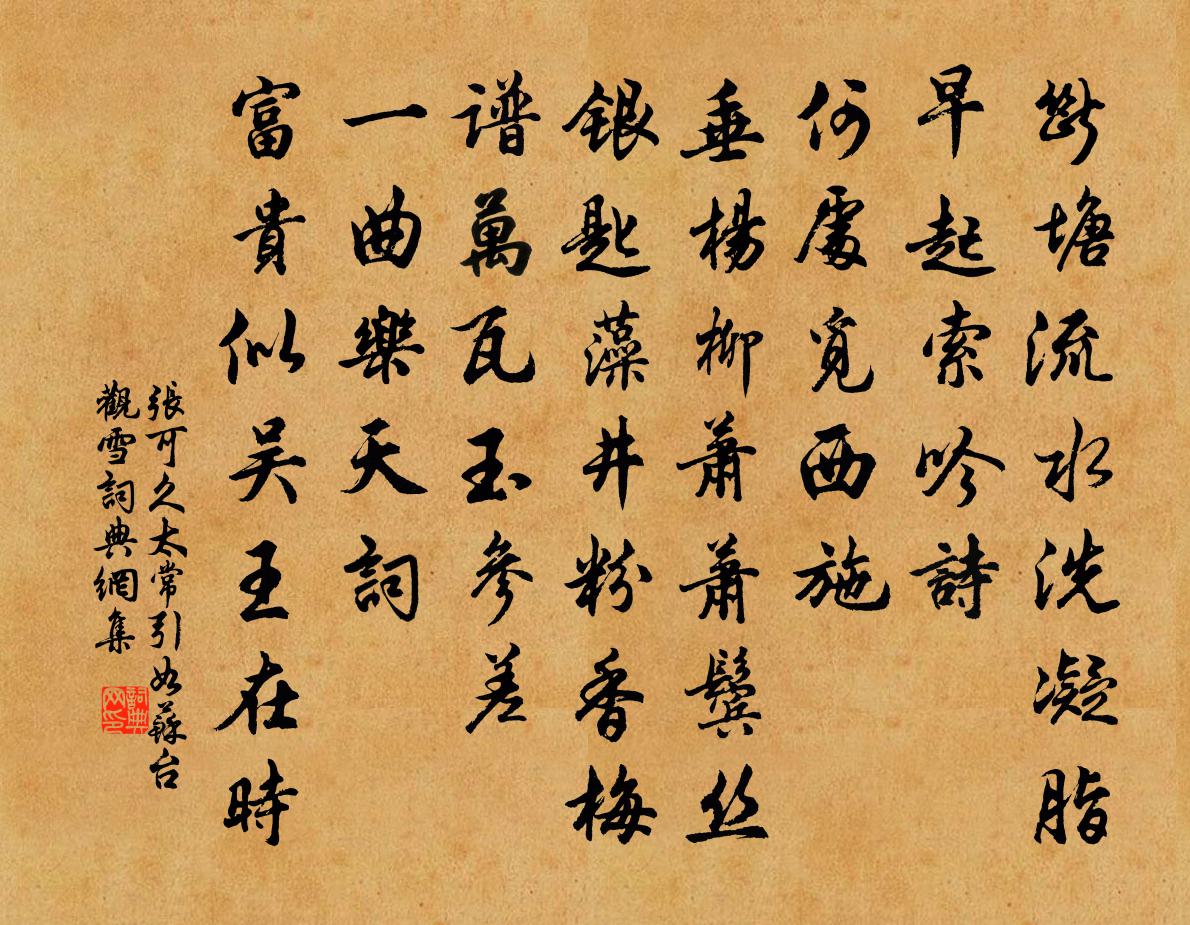 斷塘流水洗凝脂
早起索吟詩
何處覓西施
垂楊柳蕭蕭鬢丝
銀匙藻井粉香梅
谱萬瓦玉參差
一曲樂天詞
富貴似吴王在時
張可久太常引姑蘇台
觀雪詞典網集
詞典
网印